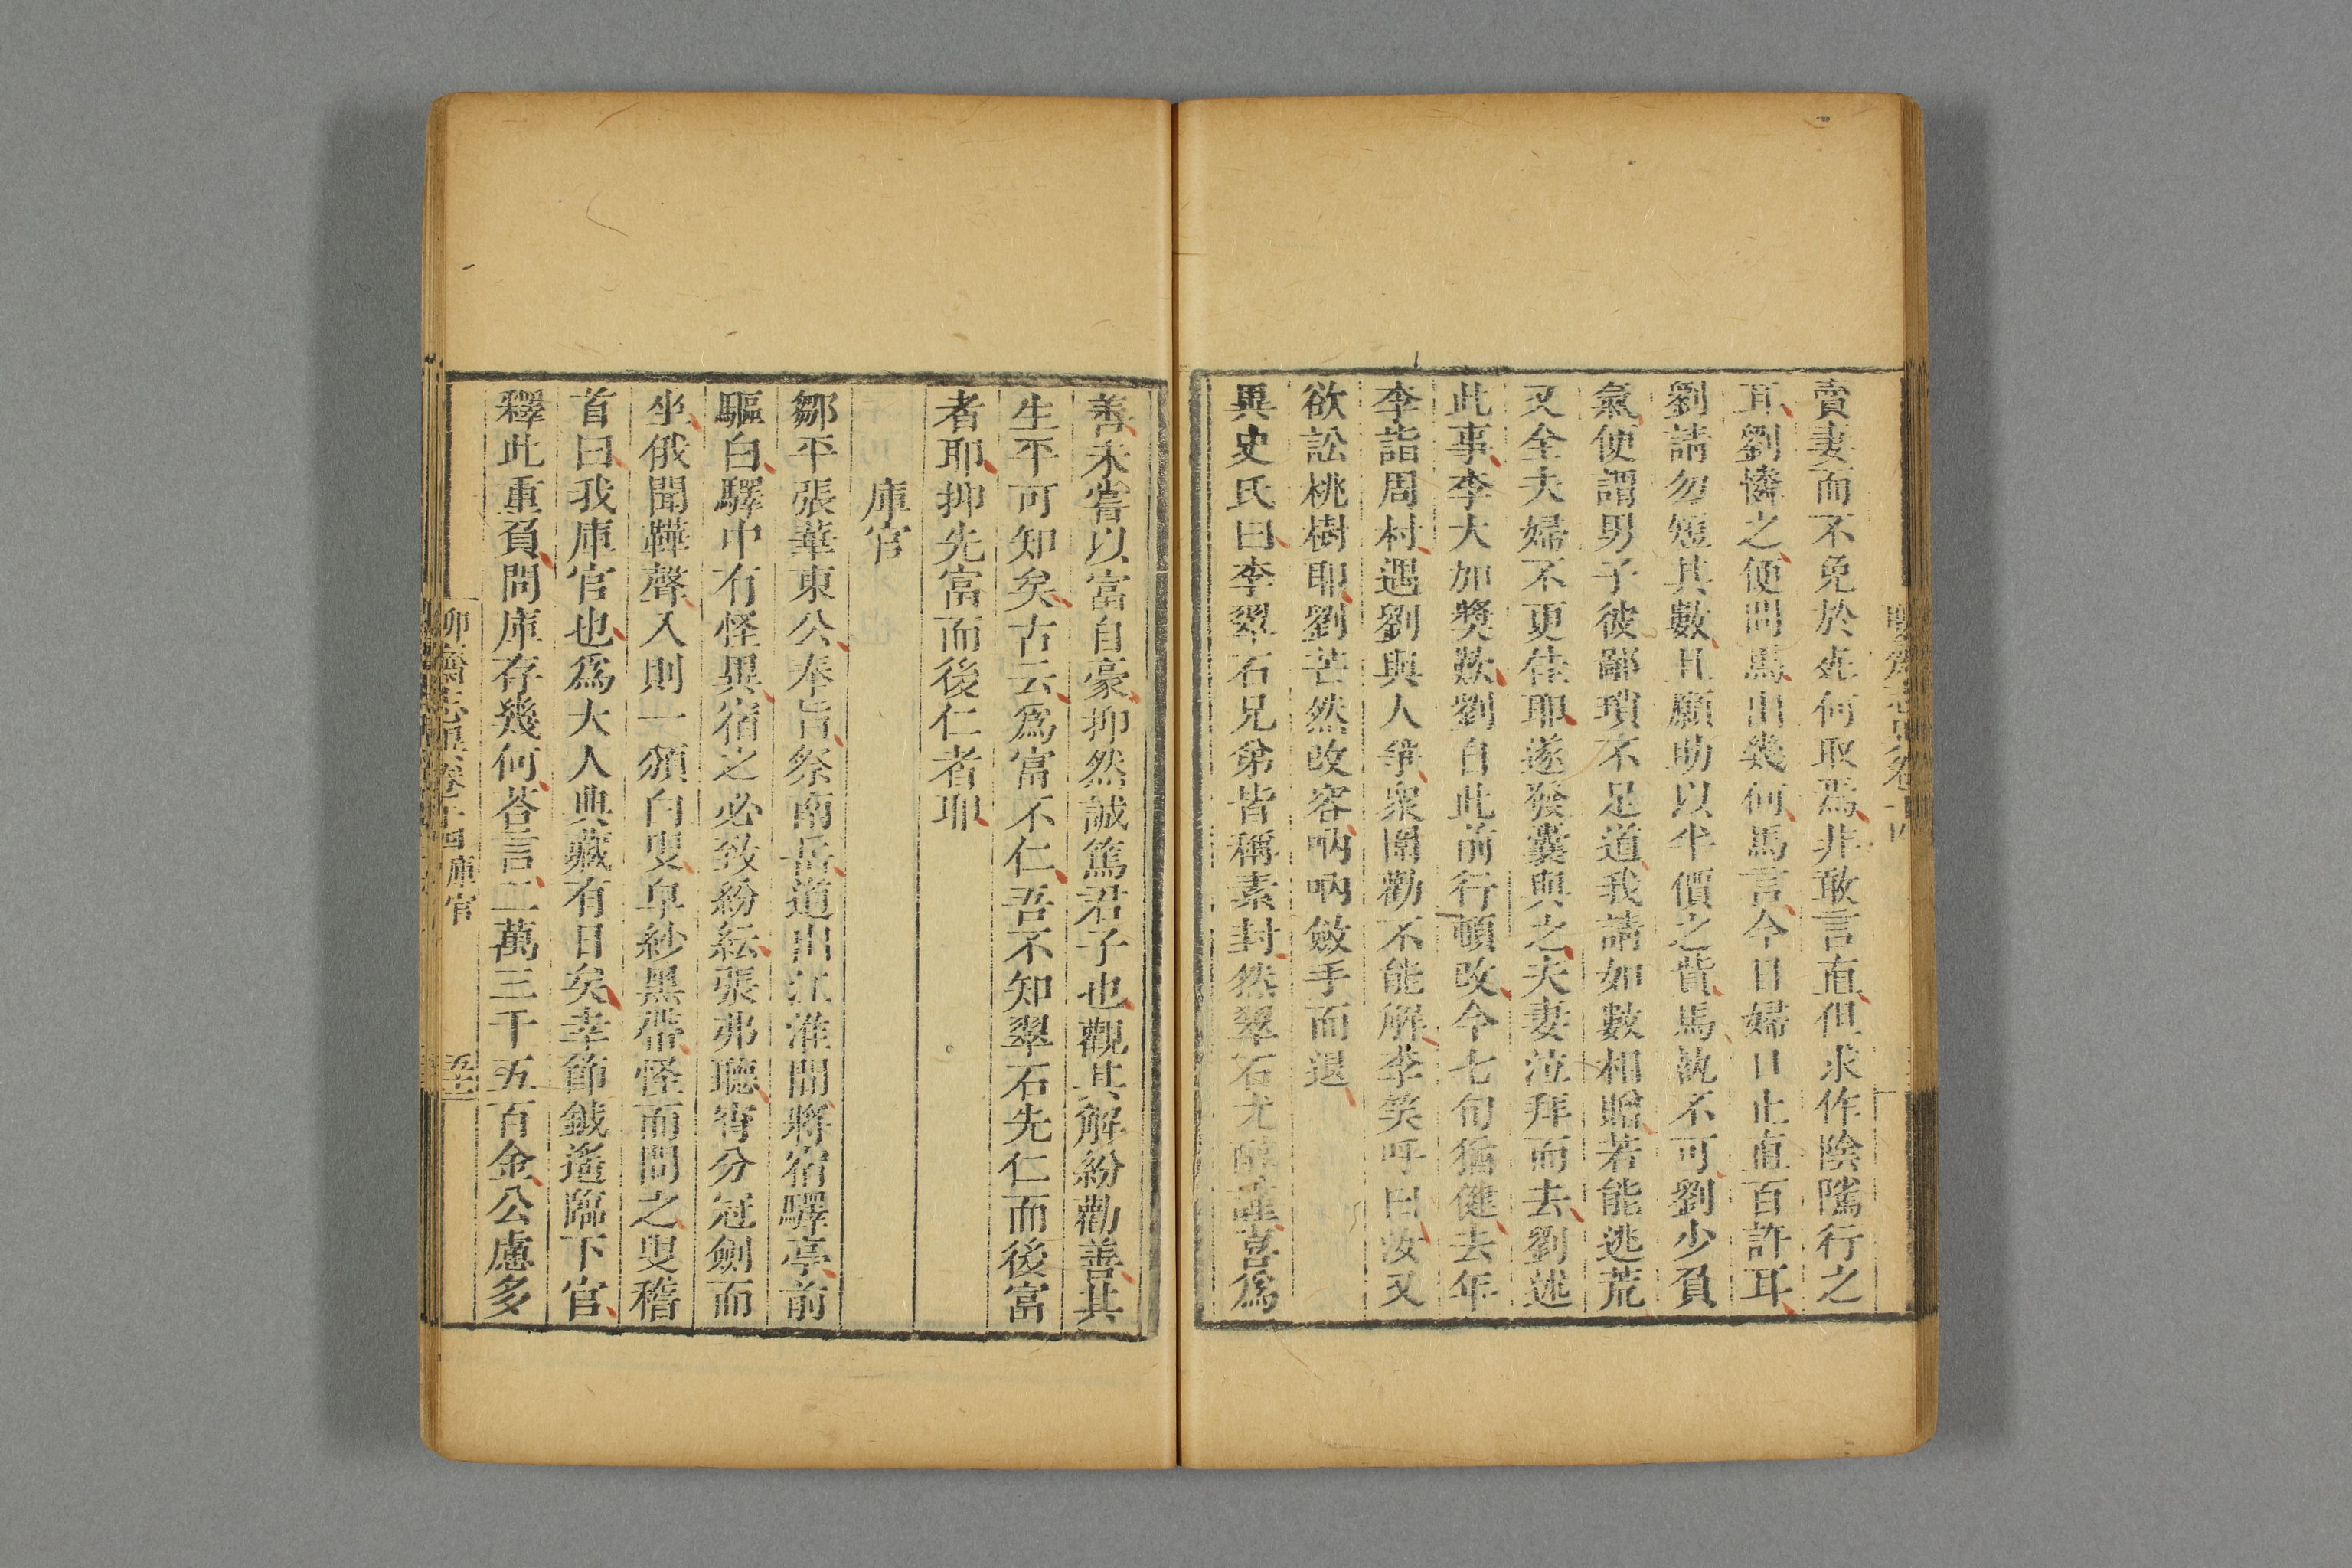 賣妻而不免於死何取焉非敢言直但求作陰隲行之
耳劉憐之便問馬出幾何馬言今日婦口止直百許耳
劉請勿短其數且願助以半價之貲馬執不可劉少負
氣便謂男子彼鄙瑣不足道我請如數相贈若能逃荒
又全夫婦不更佳耶遂發囊與之夫妻泣拜而去劉述
此事李大加獎歎劉自此前行頓改今七旬猶健去年
李詣周村遇劉與人爭衆圍勸不能解李笑呼曰汝又
欲訟桃樹耶劉芒然改容吶吶斂手而退
異史氏曰李翠石兄弟皆稱素封然翠石尤醇謹喜為
善未嘗以富自豪抑然誠篤君子也觀其解紛勸善其
生平可知矣古云為富不仁吾不知翠石先仁而後富
者耶抑先富而後仁者耶
庫官
鄒平張華東公奉旨祭南岳道出江淮間將宿驛亭前
驅白驛中有怪異宿之必致紛紜張弗聽宵分冠劍而
坐俄聞鞾聲入則一頒白叟皁紗黑帶怪而問之叟稽
首曰我庫官也為大人典藏有日矣幸節鉞遙臨下官
釋此重負問庫存幾何荅言二萬三千五百金公慮多
聊齋志異卷十四 庫官